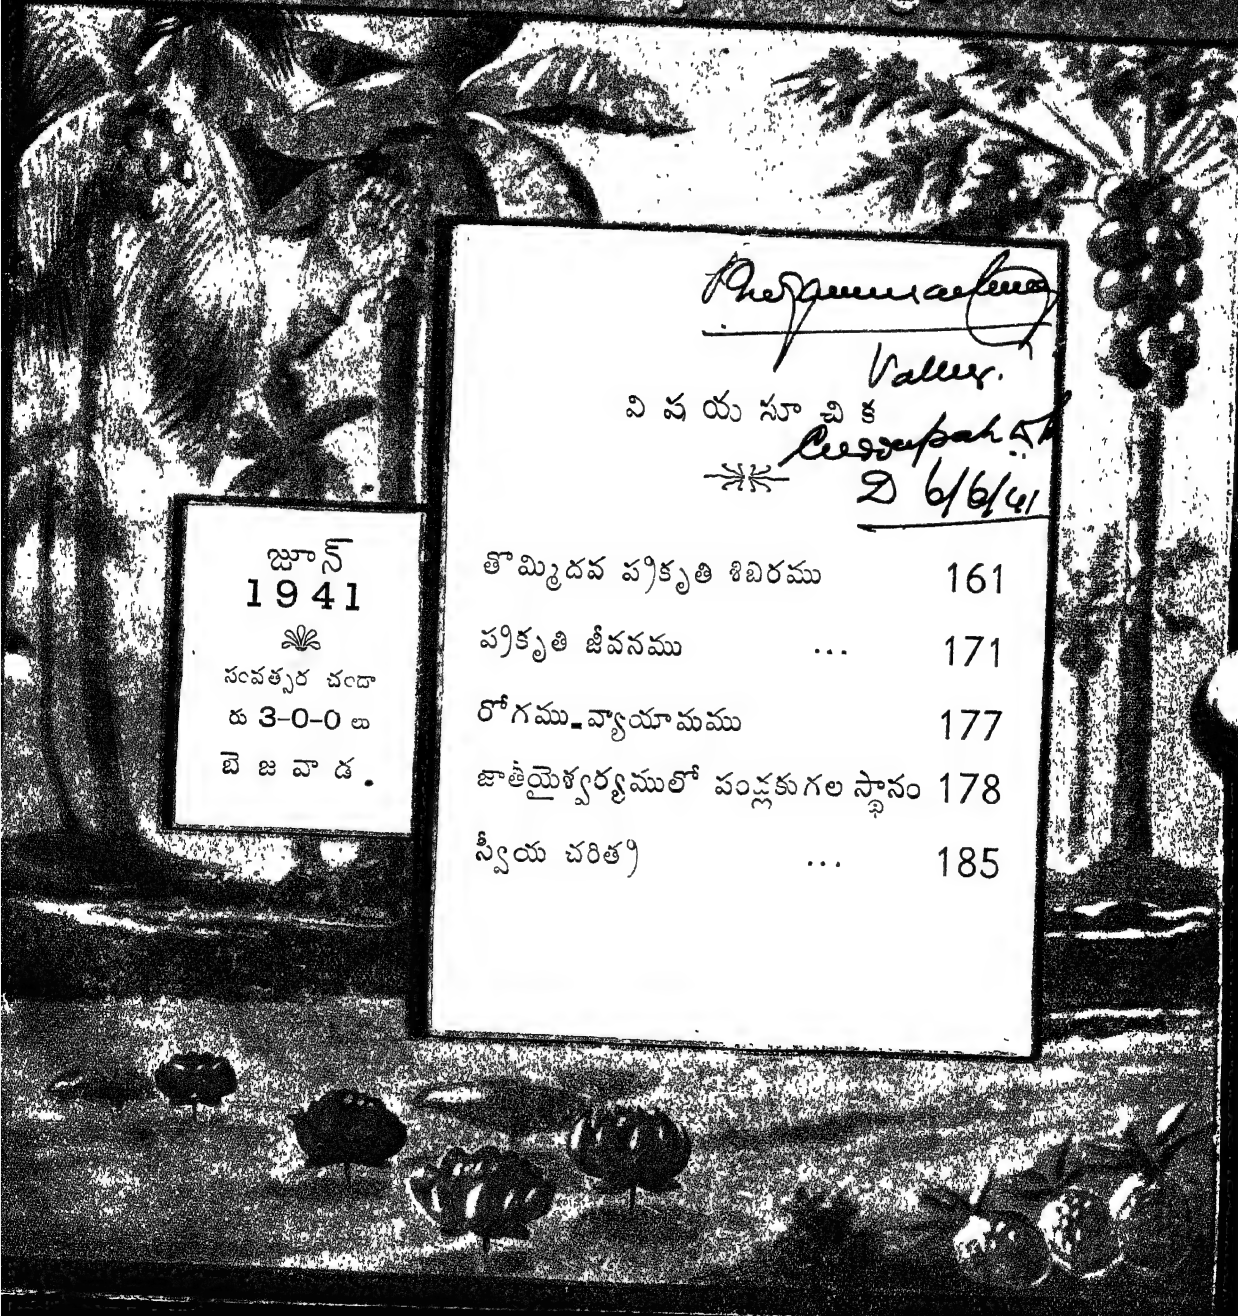 జూన్
1941
సంవత్సర చందా
రు 3-0-0 లు
బెజవాడ.
Vallur.
విషయసూచిక
Cuddapah Dt
D 6/6/41
తొమ్మిదవ ప్రకృతి శిబిరము 161
ప్రకృతి జీవనము ... 171
రోగము-వ్యాయామము 177
జాతీయైశ్వర్యములో పండ్లకుగల స్థానం 178
స్వీయ చరిత్ర ... 185